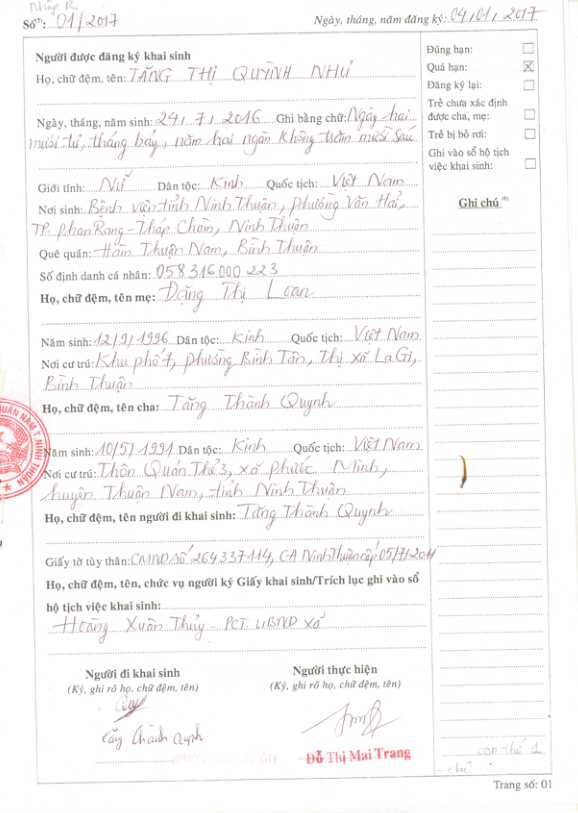 Nhập R.
Số: 01/2017 Ngày, tháng, năm đăng ký: 04/01/2017
Người được đăng ký khai sinh
Họ, chữ đệm, tên: TĂNG THỊ QUỲNH NHƯ
Ngày, tháng, năm sinh: 24/7/2016 Ghi bằng chữ: Ngày hai
mươi tư, tháng bảy, năm hai ngàn không trăm mười sáu
Giới tính: Nữ Dân tộc: Kinh Quốc tịch: Việt Nam
Nơi sinh: Bệnh viện tỉnh Ninh Thuận, phường Văn Hải,
TP. Phan Rang - Tháp Chàm, Ninh Thuận
Quê quán: Hàm Thuận Nam, Bình Thuận
Số định danh cá nhân: 058316000223
Họ, chữ đệm, tên mẹ: Đặng Thị Loan
Năm sinh: 12/9/1996 Dân tộc: Kinh Quốc tịch: Việt Nam
Nơi cư trú: Khu phố 7, phường Bình Tân, Thị xã LaGi,
Bình Thuận
Họ, chữ đệm, tên cha: Tăng Thành Quynh
Năm sinh: 10/5/1991 Dân tộc: Kinh Quốc tịch: Việt Nam
Nơi cư trú: Thôn Quán Thẻ 3, xã Phước Minh,
huyện Thuận Nam, tỉnh Ninh Thuận
Họ, chữ đệm, tên người đi khai sinh: Tăng Thành Quynh
Giấy tờ tùy thân: CMND số 264337114, CA Ninh Thuận cấp 05/7/2011
Họ, chữ đệm, tên, chức vụ người ký Giấy khai sinh/Trích lục ghi vào sổ
hộ tịch việc khai sinh:
Hoàng Xuân Thủy - PCT. UBND xã
Người đi khai sinh Người thực hiện
(Ký, ghi rõ họ, chữ đệm, tên) (Ký, ghi rõ họ, chữ đệm, tên)
Tăng Thành Quynh
Đỗ Thị Mai Trang
Đúng hạn:
Quá hạn: X
Đăng ký lại:
Trẻ chưa xác định
được cha, mẹ:
Trẻ bị bỏ rơi:
Ghi vào sổ hộ tịch
việc khai sinh:
Ghi chú (8)
con thứ 1
THUẬN NAM T. NINH THUẬN
Trang số: 01